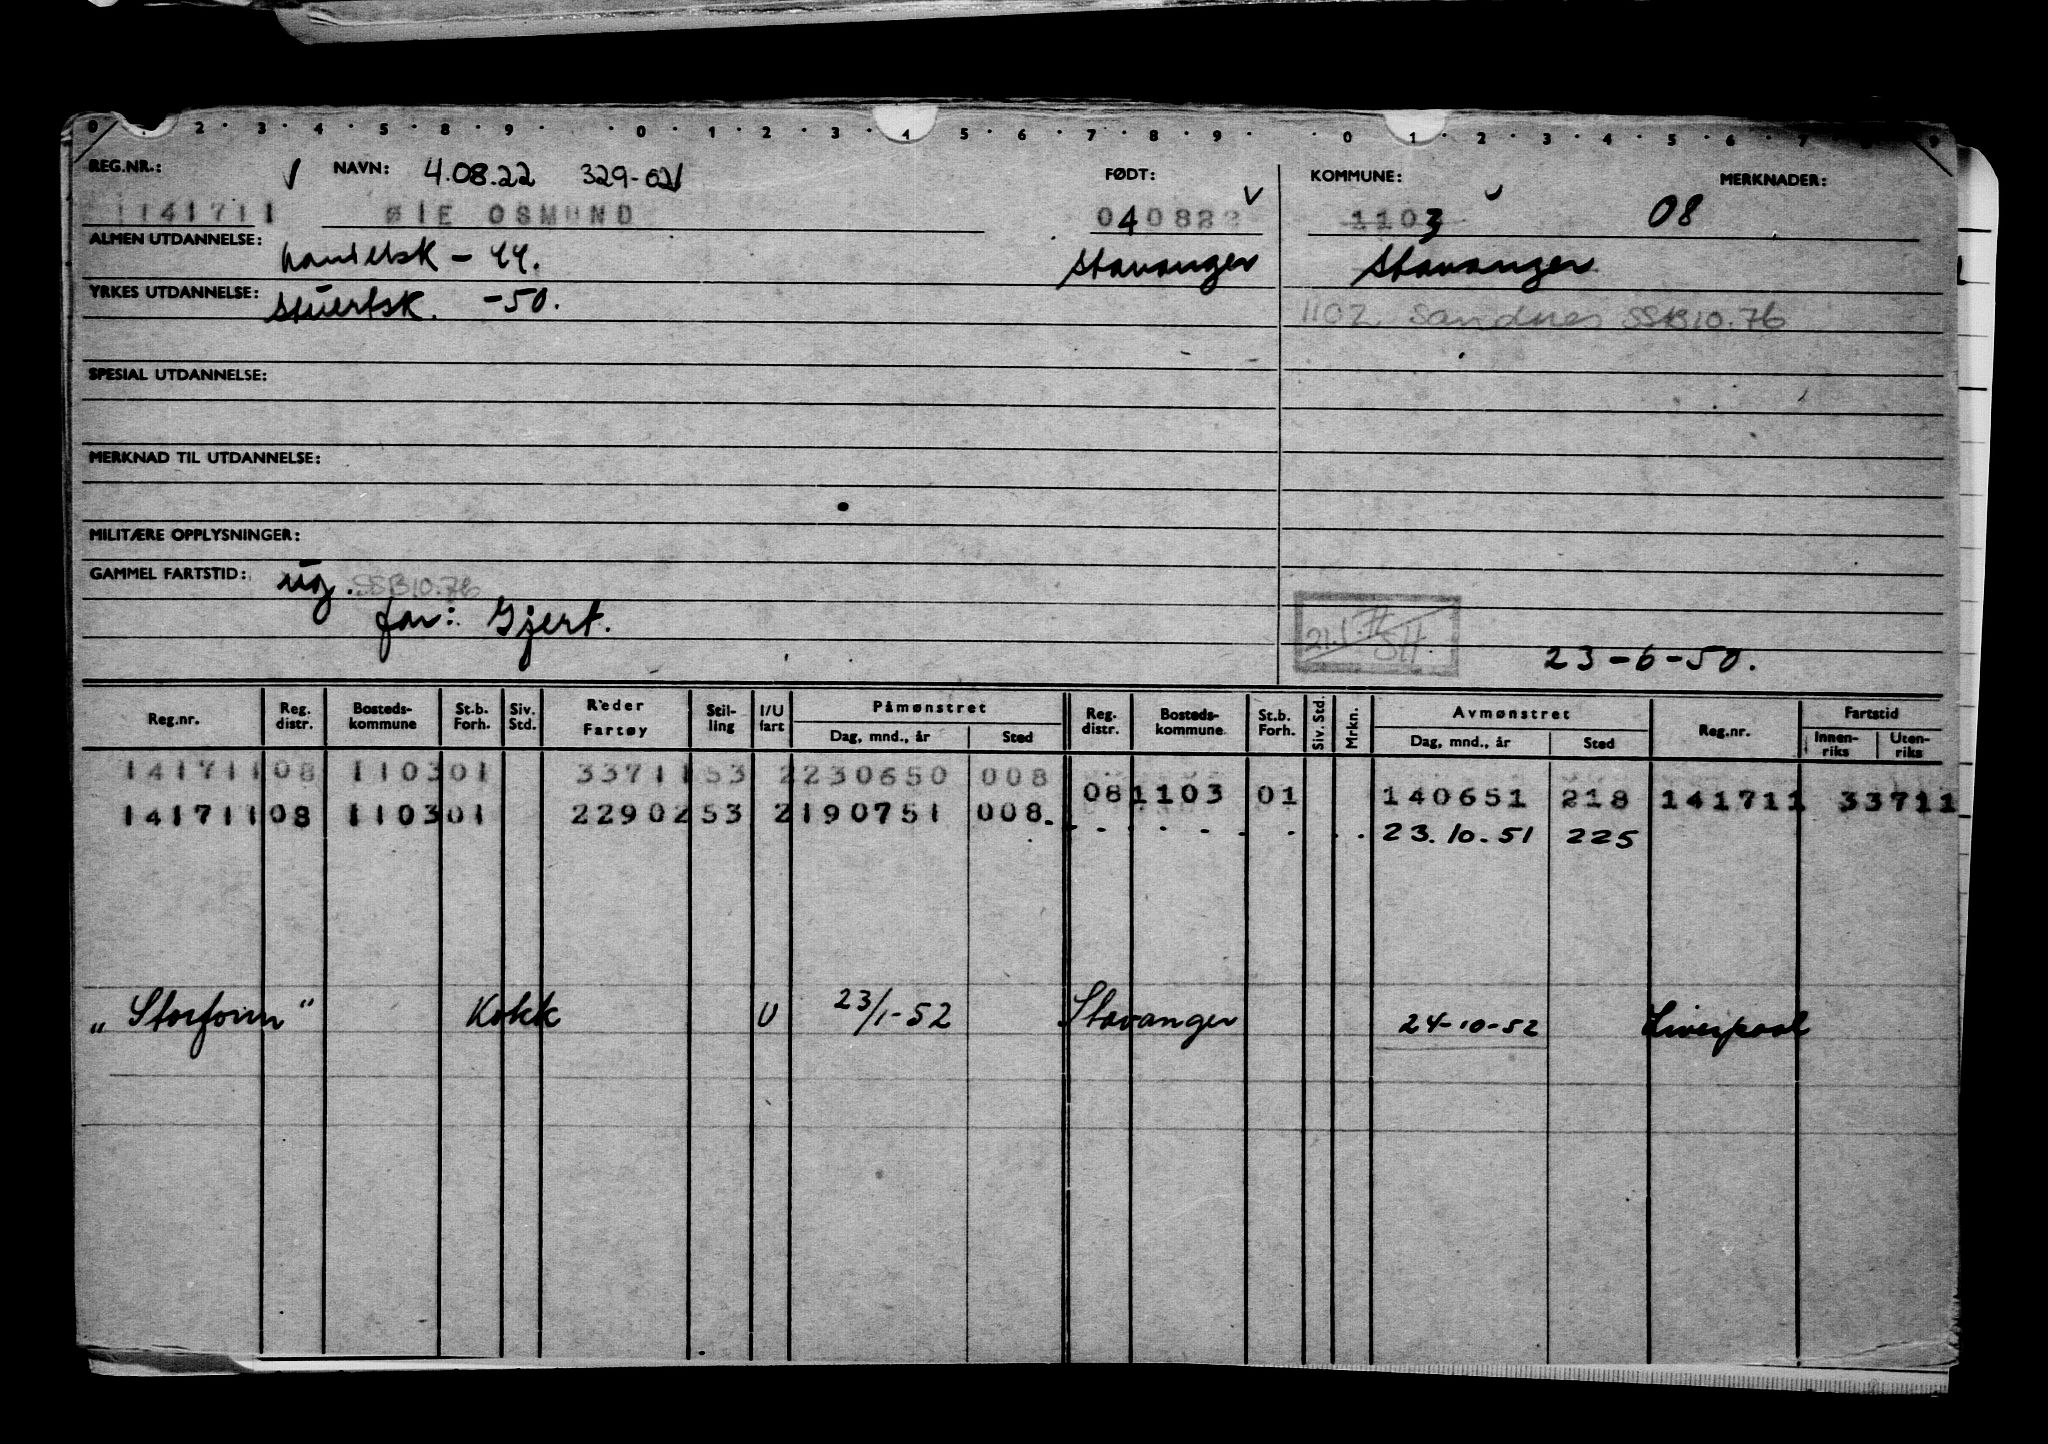 0 · 2 · 3 · 4 · 5 · 8 · 9 · 0 · 1 · 2 · 3 · 4 5 · 6 · 7 · 8 · 9 · 0 · 1 · 2 · 3 · 4 · 5 · 6 · 7 9
REG.NR.: NAVN: 4.08.22 329-02 FØDT: KOMMUNE: MERKNADER:
1141711 ØIE OSMUND 040822 1103 08
ALMEN UTDANNELSE: handelsk - 44. Stavanger Stavanger
YRKES UTDANNELSE: stuertsk. -50. 1102 Sandnes SSB10.76
SPESIAL UTDANNELSE:
MERKNAD TIL UTDANNELSE:
MILITÆRE OPPLYSNINGER:
GAMMEL FARTSTID: ug. SSB10.76
far: Gjert.
23-6-50.
Reg.nr. Reg. distr. Bosteds-kommune St.b. Forh. Siv. Std. Reder Fartøy Stil-ling I/U fart Påmønstret Dag, mnd., år Sted Reg. distr. Bosteds-kommune St.b. Forh. Siv. Std. Mrkn. Avmønstret Dag, mnd., år Sted Reg.nr. Fartstid Innen-riks Uten-riks
141711 08 1103 01 33711 53 2 230650 008 08 1103 01 140651 218 141711 33711
141711 08 1103 01 22902 53 2 190751 008 . . . . . . . . 23.10.51 225
"Storfonn" Kokk U 23/1-52 Stavanger 24-10-52 Liverpool